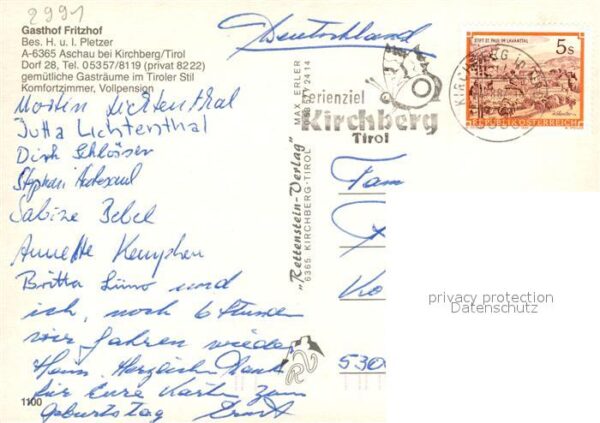 2991
Gasthof Fritzhof
Bes. H. u. I. Pletzer
A-6365 Aschau bei Kirchberg/Tirol
Dorf 28, Tel. 05357/8119 (privat 8222)
gemütliche Gasträume im Tiroler Stil
Komfortzimmer, Vollpension
Martin Lichtenthal
Jutta Lichtenthal
Dirk Schlösser
Stephan
Sabine Bebel
Annette Kemphen
Britta und
ich, noch 6 Stunden
wir fahren wieder
Herzlichen Dank
für Eure Karten zum
Geburtstag Ernst
1100
Deutschland
Ferienziel
Kirchberg
Tirol
STIFT ST. PAUL IM LAVANTTAL
5 S
REPUBLIK ÖSTERREICH
MAX ERLER
"Rettenstein-Verlag"
6365 KIRCHBERG-TIROL
RV
Fam
Ko
530
privacy protection
Datenschutz